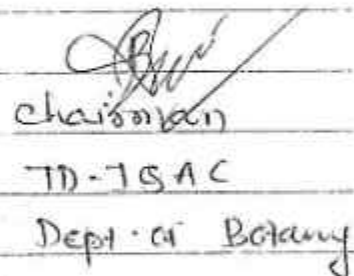 Chairman
TD-TGAC
Dept. of Botany